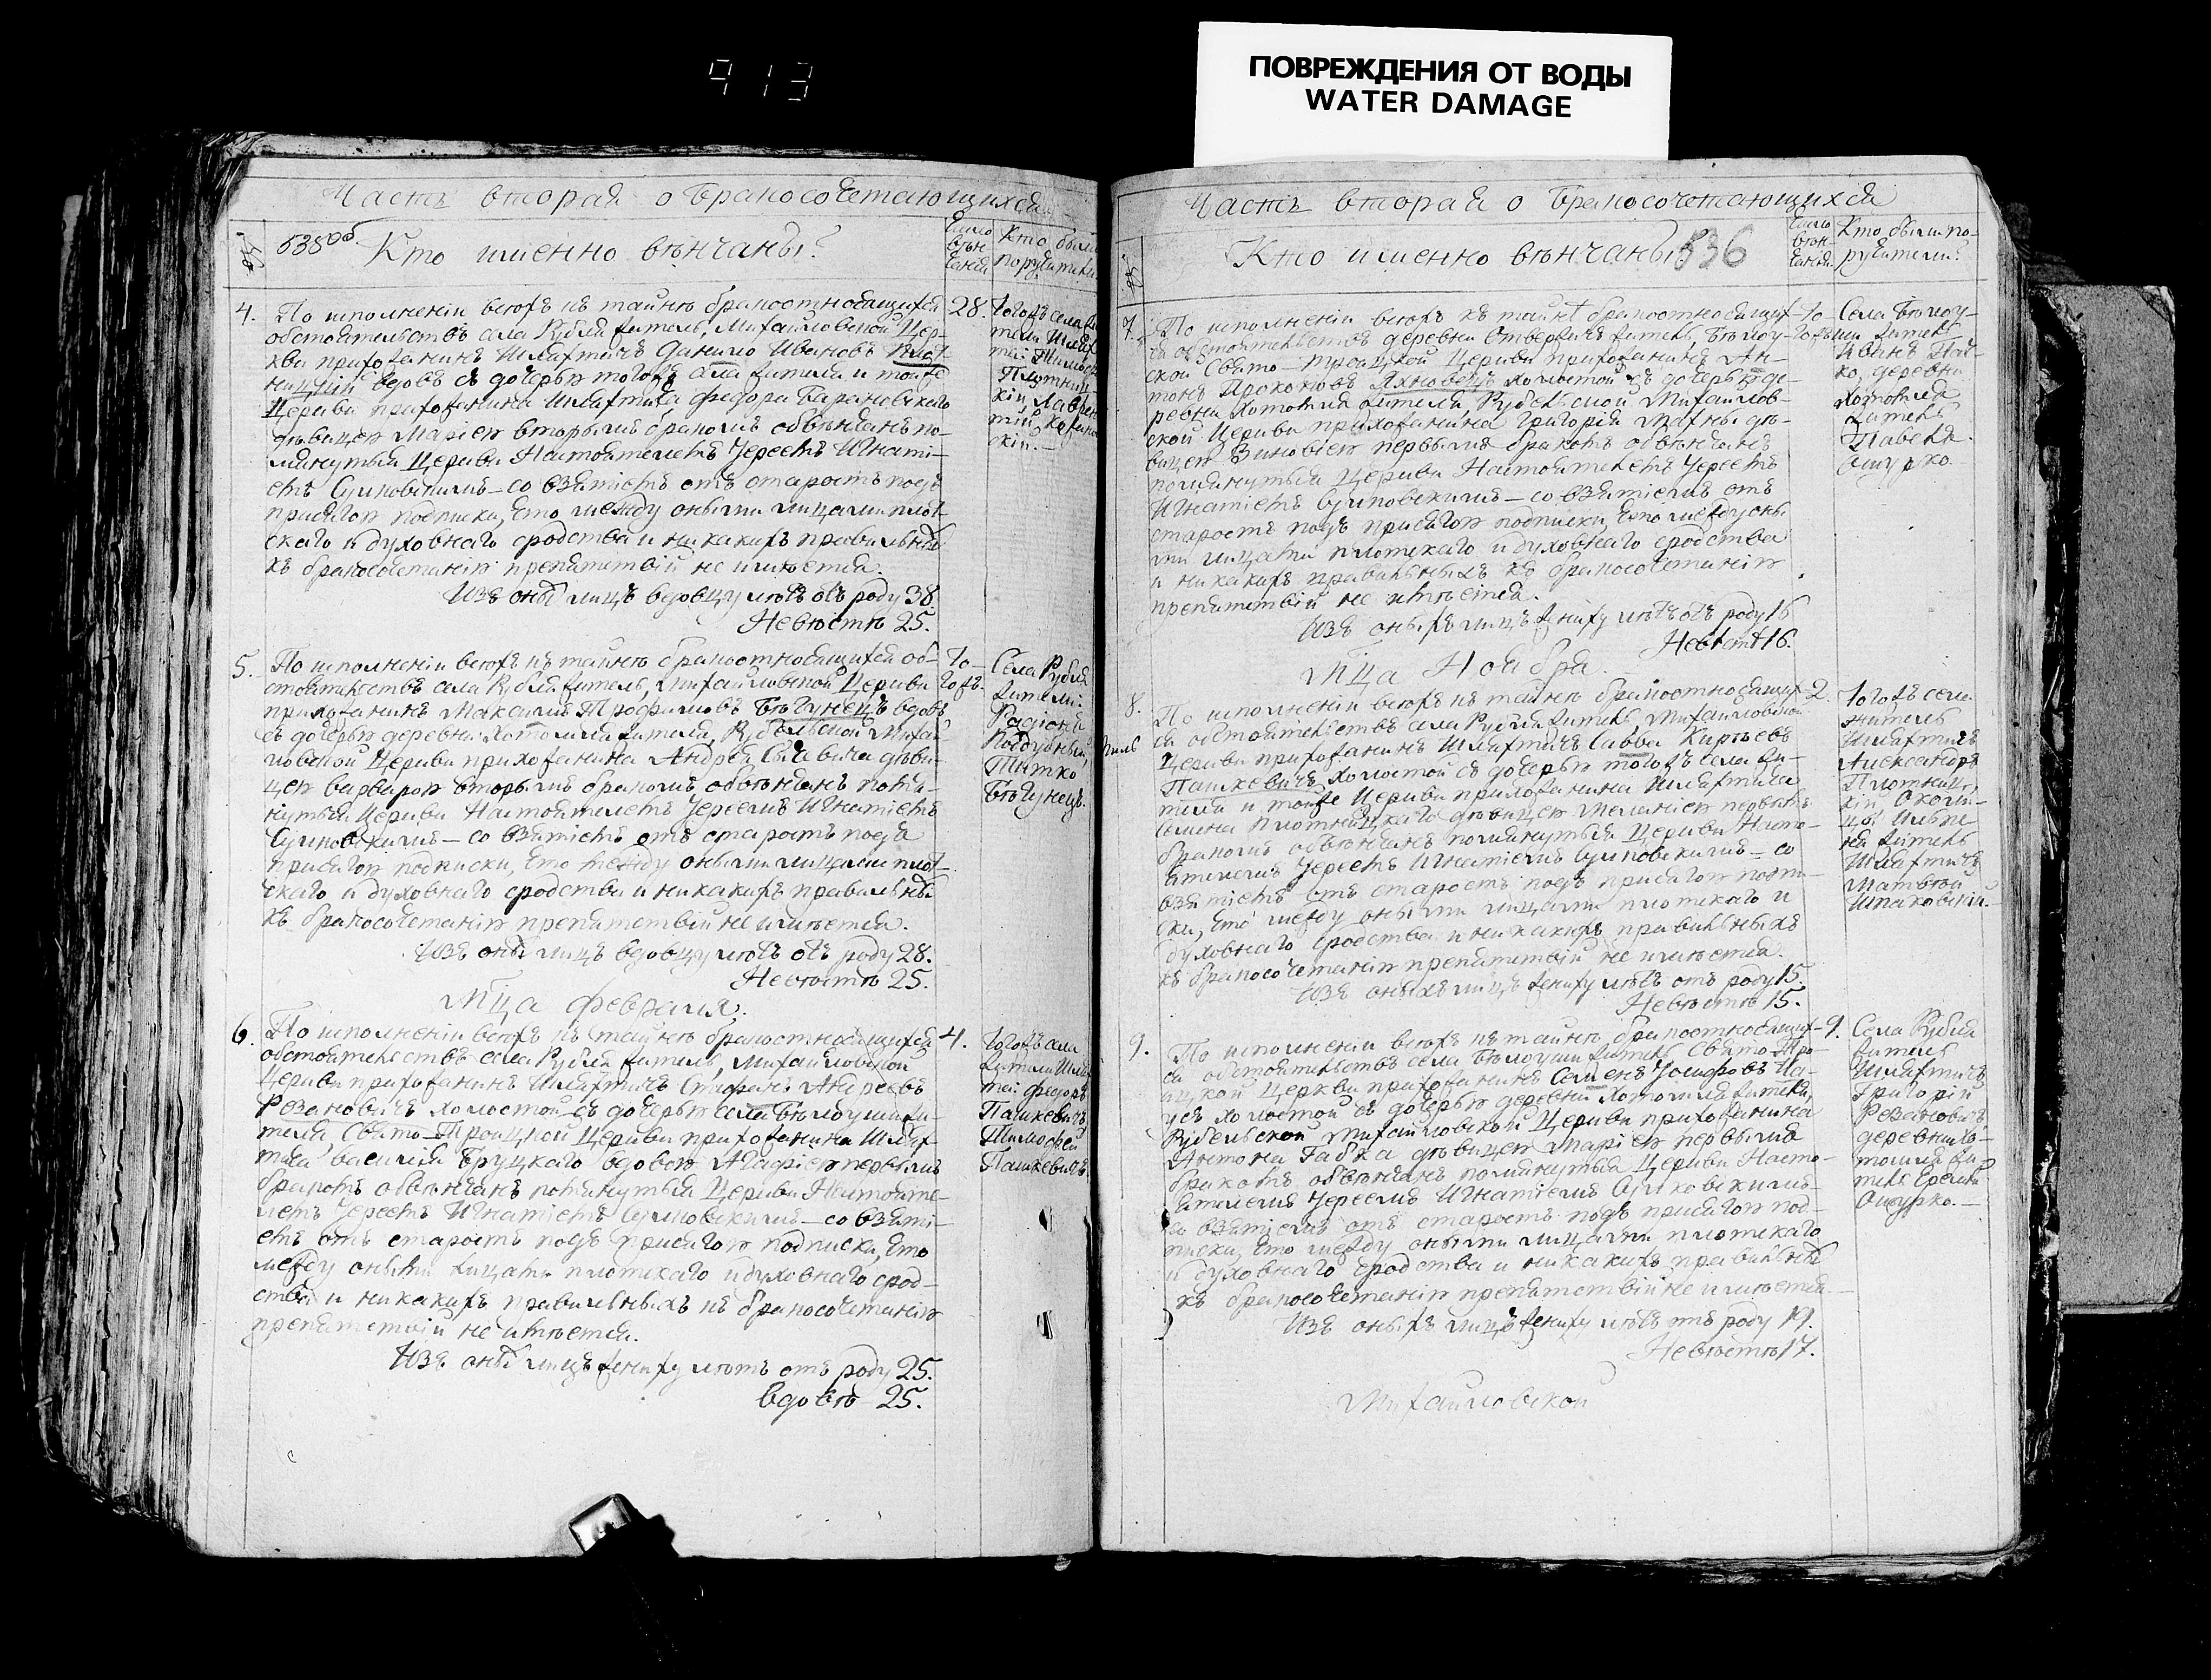 913
ПОВРЕЖДЕНИЯ ОТ ВОДЫ
WATER DAMAGE
Часть вторая о Бракосочетающихся
535об.
Кто именно вѣнчаны?
Число вѣнчанія
Кто были поручители
4.
По исполненіи всѣхъ къ тайнѣ бракоотносящихся
обстоятельствъ села Рубля житель, Михайловской Цер-
кви прихожанинъ Шляхтичъ Данило Ивановъ Плот-
ницкій вдовъ съ дочерью тогожъ села жителя и тойже
Церкви прихожанина Шляхтича Федора Барановскаго
дѣвицею Маріею вторымъ бракомъ обвѣнчанъ по-
мянутыя Церкви Настоятелемъ Іереемъ Игнаті-
емъ Сулковскимъ – со взятіемъ отъ старость подъ
присягою подписки, что между оными лицами плот-
скаго и духовнаго сродства и никакихъ правильныхъ
къ бракосочетанію препятствій не имѣется.
Изъ оныхъ лицъ вдовцу лѣтъ отъ роду 38
Невѣстѣ 25.
28.
Тогожъ села
Плотниц-
кій, Лаврен
тій
скій.
5.
По исполненіи всѣхъ къ тайнѣ бракоотносящихся об-
стоятельствъ села Рубля житель, Михайловской Церкви
прихожанинъ Максимъ Трофимовъ Бѣгунецъ вдовъ
съ дочерью деревни Хотомля жителя, Рубельской Михай
ловской Церкви прихожанина Андрея дѣви-
цею Варварою вторымъ бракомъ обвѣнчанъ помя-
нутыя Церкви Настоятелемъ Іереемъ Игнатіемъ
Сулковскимъ – со взятіемъ отъ старостъ подъ
присягою подписки, что между оными лицами плот-
скаго и духовнаго сродства и никакихъ правильныхъ
къ бракосочетанію препятствій не имѣется.
Изъ оныхъ лицъ вдовцу лѣтъ отъ роду 28.
Невѣстѣ 25.
То-
гожъ.
Села Рубля
жители:
Радіонъ
Поддубный,
Титко
Бѣгунецъ.
Мца Февраля.
6.
По исполненіи всѣхъ къ тайнѣ бракоотносящихся
обстоятельствъ села Рубля житель, Михайловской
Церкви прихожанинъ Шляхтичъ Стефанъ Андреевъ
Розановичъ холостой – съ дочерью села Бѣлоуши жи-
теля, Свято-Троицкой Церкви прихожанина Шлях-
тича Василія Бруцкаго вдовою Агафіею первымъ
бракомъ обвѣнчанъ помянутыя Церкви Настояте-
лемъ Іереемъ Игнатіемъ Сулковскимъ – со взяті-
емъ отъ старостъ подъ присягою подписки, что
между оными лицами плотскаго и духовнаго срод-
ства и никакихъ правильныхъ къ бракосочетанію
препятствій не имѣется.
Изъ оныхъ лицъ жениху лѣтъ отъ роду 25.
Вдовѣ 25.
4.
Тогожъ села
жители Шлях
тичи: Федоръ
Пашкевичъ,
Тимофей
Пашкевичъ.
Часть вторая о Бракосочетающихся
Кто именно вѣнчаны?
536
Число вѣн-
чанія.
Кто были по-
ручители?
7.
По исполненіи всѣхъ къ тайнѣ бракоотносящих-
ся обстоятельствъ деревни Отвержичъ житель, Бѣлоу-
ской Свято-Троицкой Церкви прихожанинъ Ан-
тонъ Прокоповъ Яхновецъ холостой съ дочерью де-
ревни Хотомля жителя, Рубельской Михайлов-
ской Церкви прихожанина Григорія дѣ-
вицею Зиновіею первымъ бракомъ обвѣнчанъ
помянутыя Церкви Настоятелемъ Іереемъ
Игнатіемъ Сулковскимъ – со взятіемъ отъ
старостъ подъ присягою подписки, что между оны
ми лицами плотскаго и духовнаго сродства
и никакихъ правильныхъ къ бракосочетанію
препятствій не имѣется.
Изъ оныхъ лицъ жениху лѣтъ отъ роду 16
Невѣстѣ 16.
То-
гожъ
Села Бѣлоу-
ши житель
Иванъ
деревни
Хотомля
житель
Павелъ
Ошурко.
Мца Ноября.
8.
По исполненіи всѣхъ къ тайнѣ бракоотносящих-
ся обстоятельствъ села Рубля житель Михайловской
Церкви прихожанинъ Шляхтичъ Савва Киріевъ
Пашкевичъ холостой съ дочерью тогожъ села жи-
теля и тойже Церкви прихожанина Шляхтича
Семена Плотницкаго дѣвицею Меланіею первымъ
бракомъ обвѣнчанъ помянутыя Церкви Насто-
ятелемъ Іереемъ Игнатіемъ Сулковскимъ – со
взятіемъ отъ старостъ подъ присягою подпи-
ски, что между оными лицами плотскаго и
духовнаго сродства и никакихъ правильныхъ
къ бракосочетанію препятствій не имѣется.
Изъ оныхъ лицъ жениху лѣтъ отъ роду 15.
Невѣстѣ 15.
2.
Тогожъ села
житель
Шляхтичъ
Александръ
Плотниц-
кій Околи-
цы
житель
Шляхтичъ
Матвей
Шпаковскій.
9.
По исполненіи всѣхъ къ тайнѣ бракоотносящих-
ся обстоятельствъ села Бѣлоуши житель Свято-Тро-
ицкой Церкви прихожанинъ Семенъ Іосифовъ
холостой съ дочерью деревни Хотомля жителя,
Рубельской Михайловской Церкви прихожанина
Антона Габка дѣвицею Маріею первымъ
бракомъ обвѣнчанъ помянутыя Церкви Насто-
ятелемъ Іереемъ Игнатіемъ Сулковскимъ –
со взятіемъ отъ старостъ подъ присягою под-
писки, что между оными лицами плотскаго
и духовнаго сродства и никакихъ правильныхъ
къ бракосочетанію препятствій не имѣется
Изъ оныхъ лицъ жениху лѣтъ отъ роду 19.
Невѣстѣ 17.
9.
Села Рубля
житель
Шляхтичъ
Григорій
Резановичъ
деревни Хо-
томля жи-
тель
Ошурко. –
Михайловской